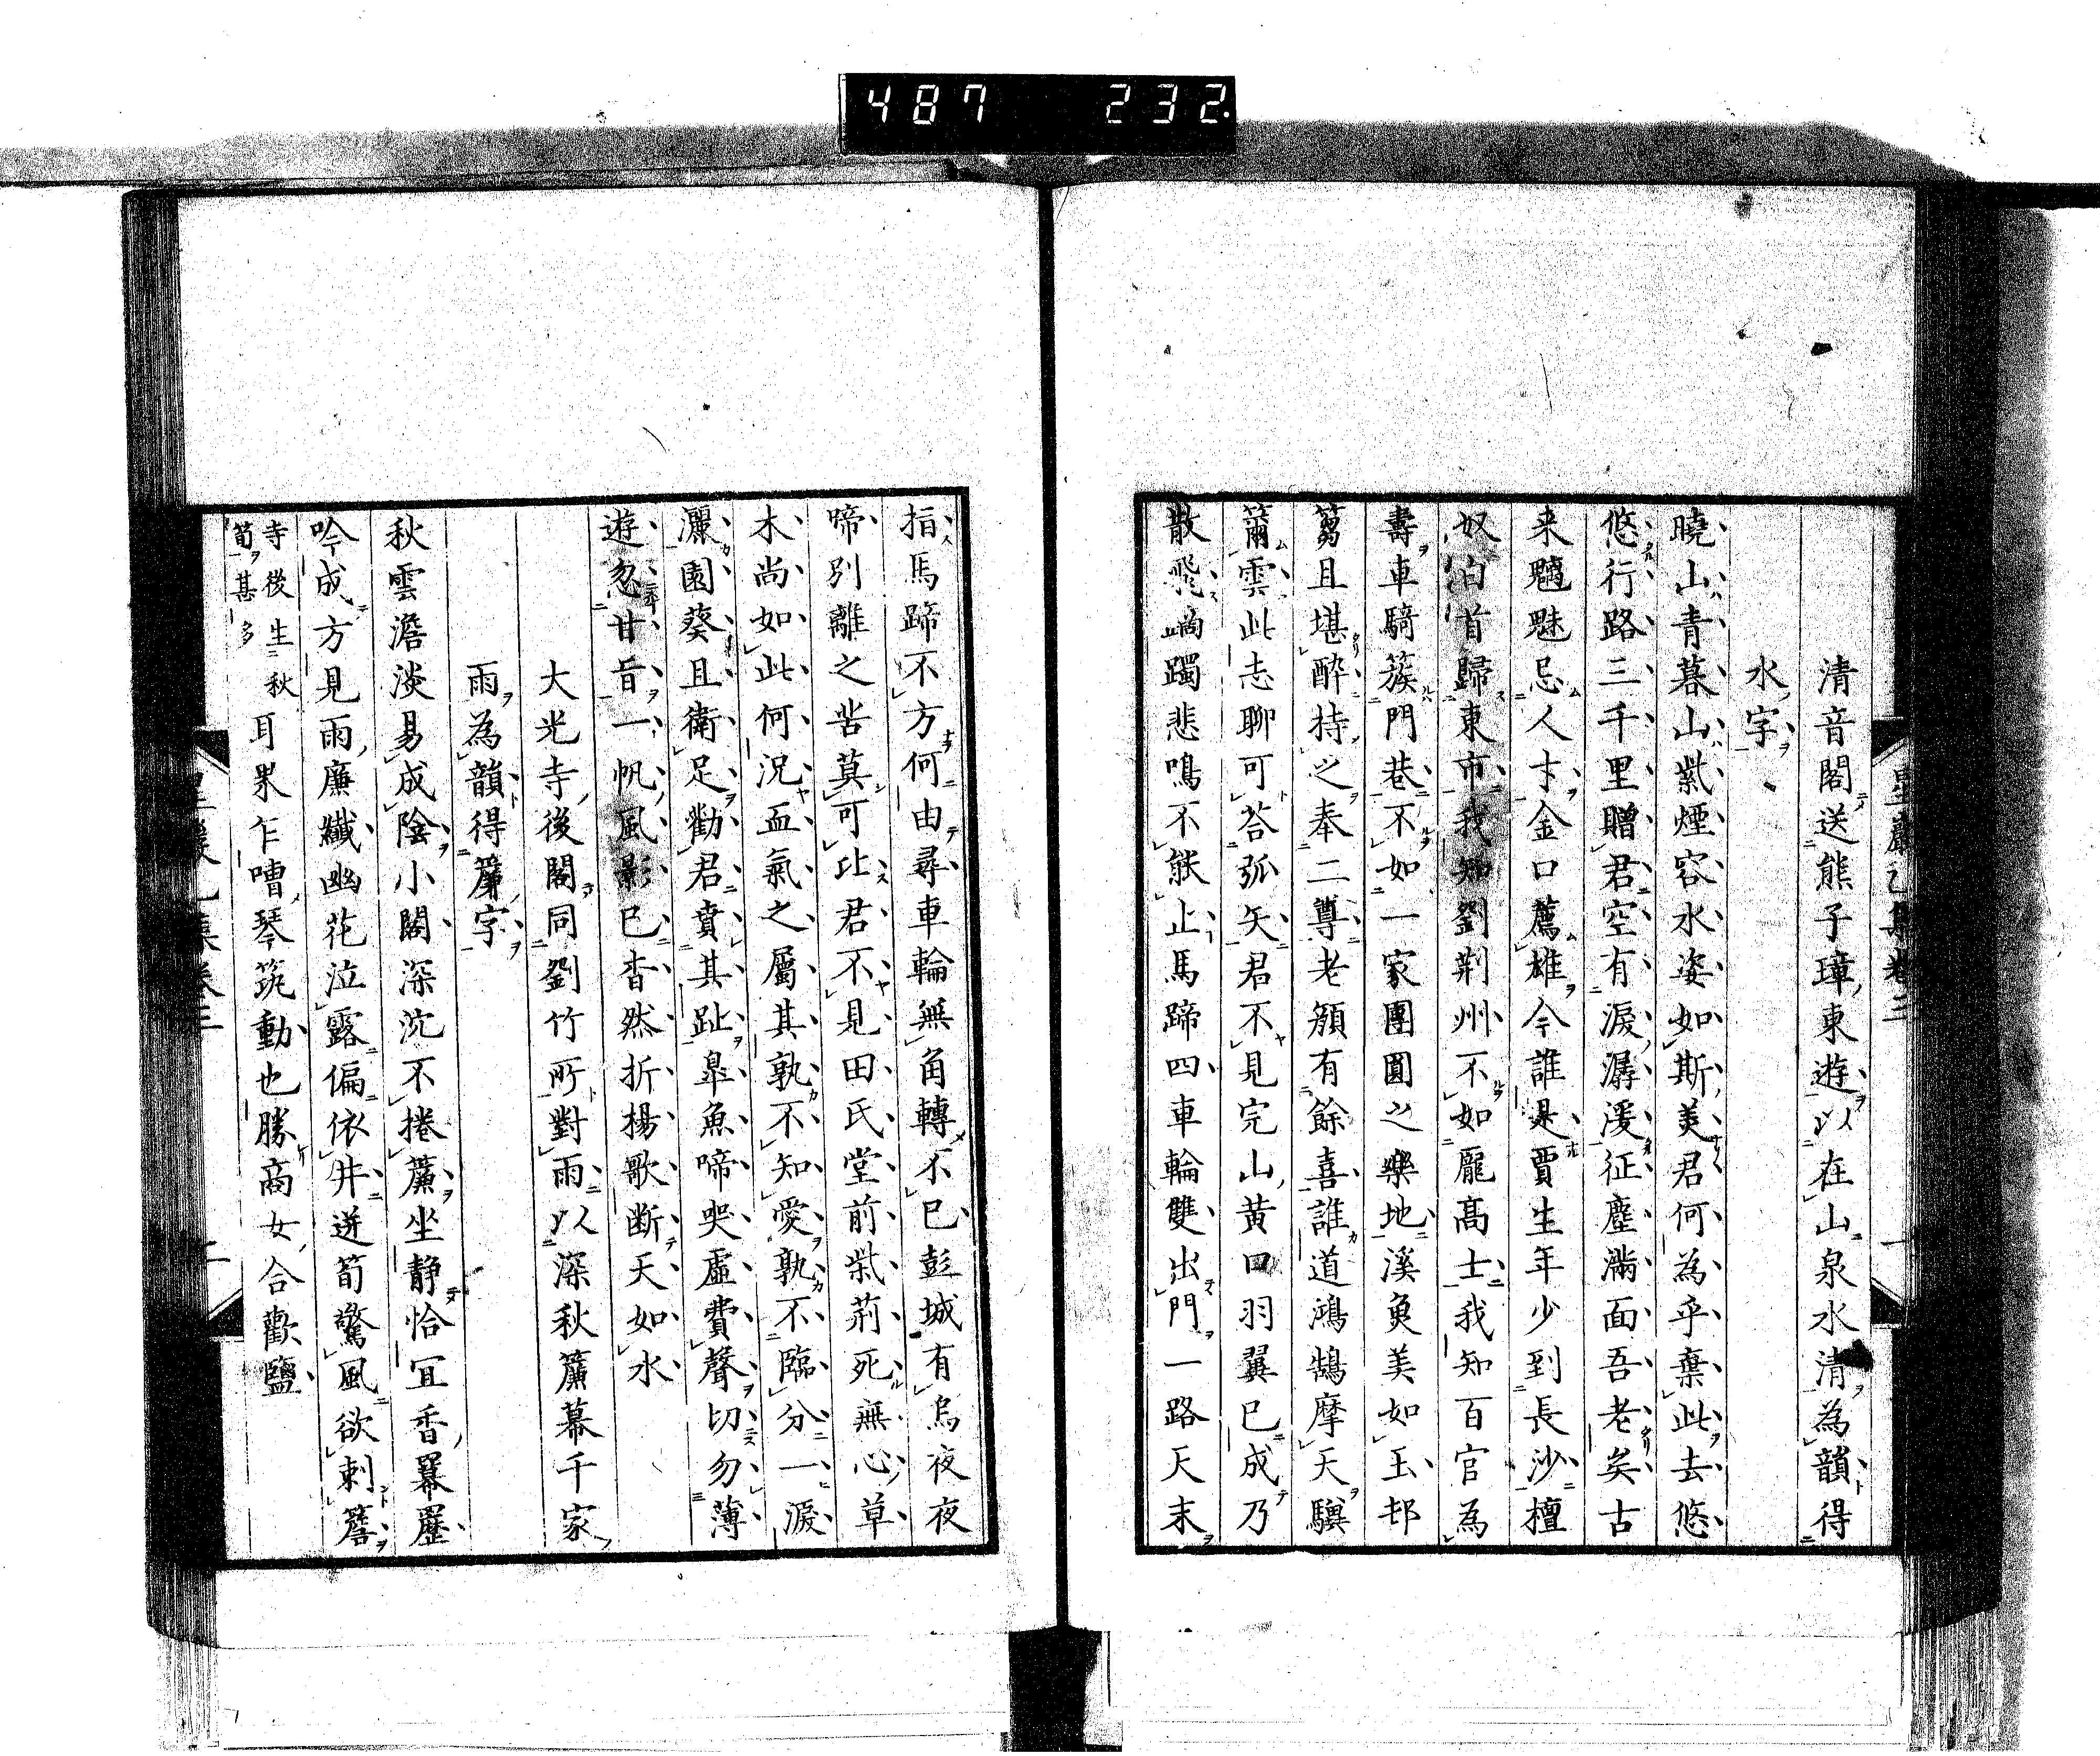 487 232.
清音閣送熊子璋東遊以在山泉水清為韻得
水字
曉山青暮山紫煙容水姿如斯美君何為乎棄此去悠
悠行路三千里贈君空有淚潺湲征塵滿面吾老矣古
来魑魅忌人才金口薦雄今誰是賈生年少到長沙檀
奴白首歸東市我知劉荆州不如龐高士我知百官為
壽車騎簇門巷不如一家團圓之樂地溪魚美如玉邨
蒭且堪酔持之奉二尊老顏有餘喜誰道鴻鵠摩天驥
萬雲此志聊可荅弧矢君不見完山黄口羽翼已成乃
散飛躑躅悲鳴不能止馬蹄四車輪雙出門一路天末
指馬蹄不方何由尋車輪無角轉不已彭城有烏夜夜
啼別離之苦莫可比君不見田氏堂前紫荊死無心草
木尚如此何況血氣之屬其孰不知愛孰不臨分一淚
灑園葵且衛足勸君賁其趾皐魚啼哭虛費聲切勿薄
遊忽甘旨一帆風影已杳然折楊歌断天如水
大光寺後閣同劉竹所對雨以深秋簾幕千家
雨為韻得簾字
秋雲澹淡易成陰小閣深沈不捲簾坐靜恰宜香羃䍦
吟成方見雨廉纖幽花泣露偏依井迸筍驚風欲刺簷
寺後生秋
筍甚多
耳界乍嘈琴筑動也勝高女合歡鹽